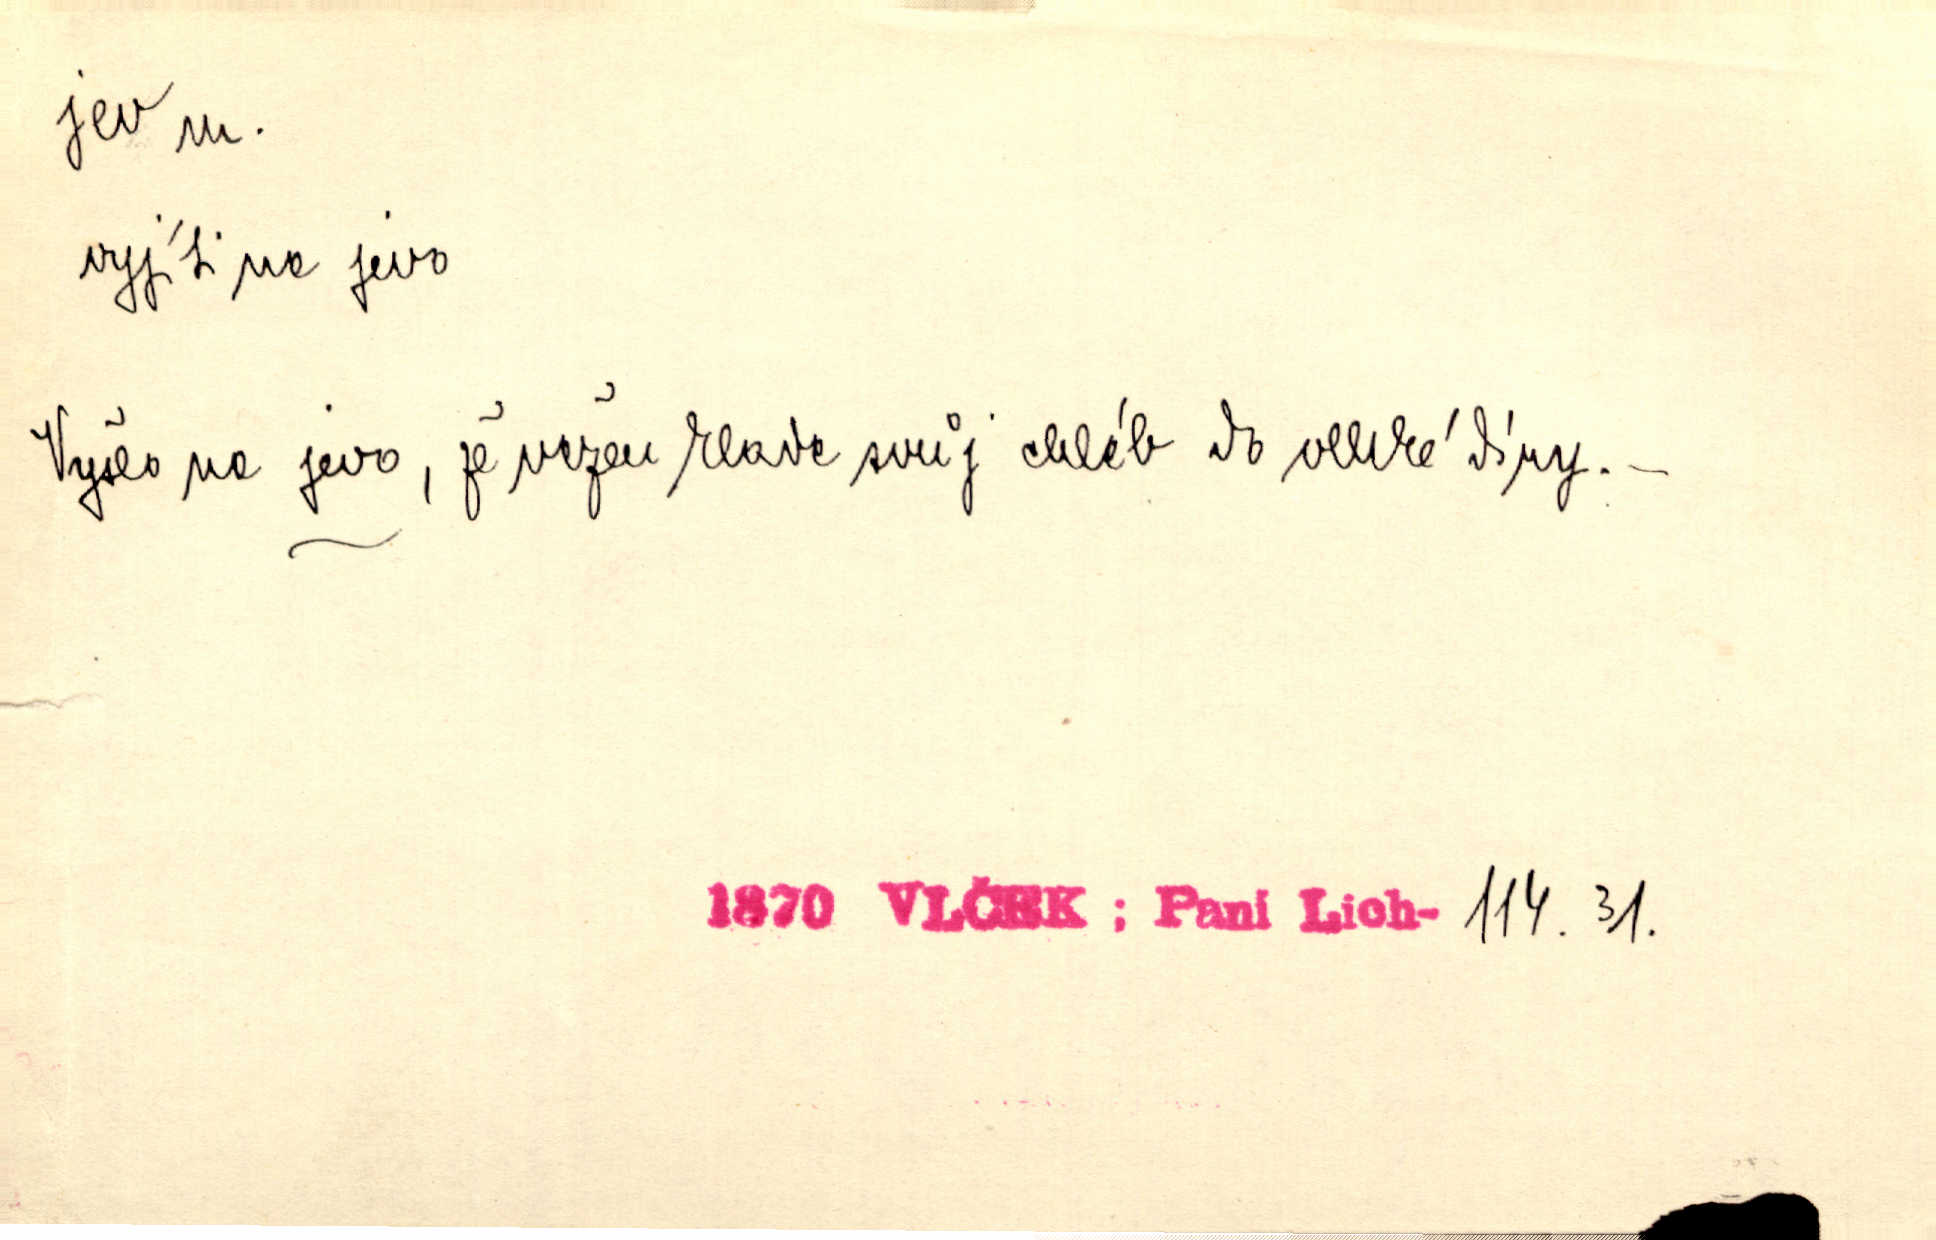 jev m.
vyjíti na jevo
Vyšlo na jevo, že vězeň klade svůj chléb do vlhké díry. —
1870 VLČEK ; Paní Lich- 114. 31.